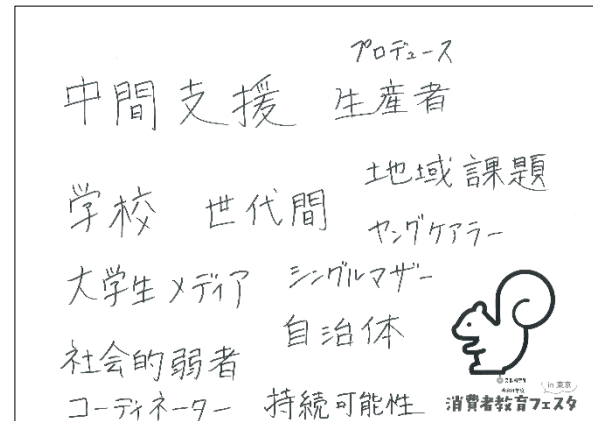 プロデュース
中間支援 生産者
地域課題
学校 世代間
ヤングケアラー
大学生メディア シングルマザー
自治体
社会的弱者
コーディネーター 持続可能性
in 東京
消費者教育フェスタ